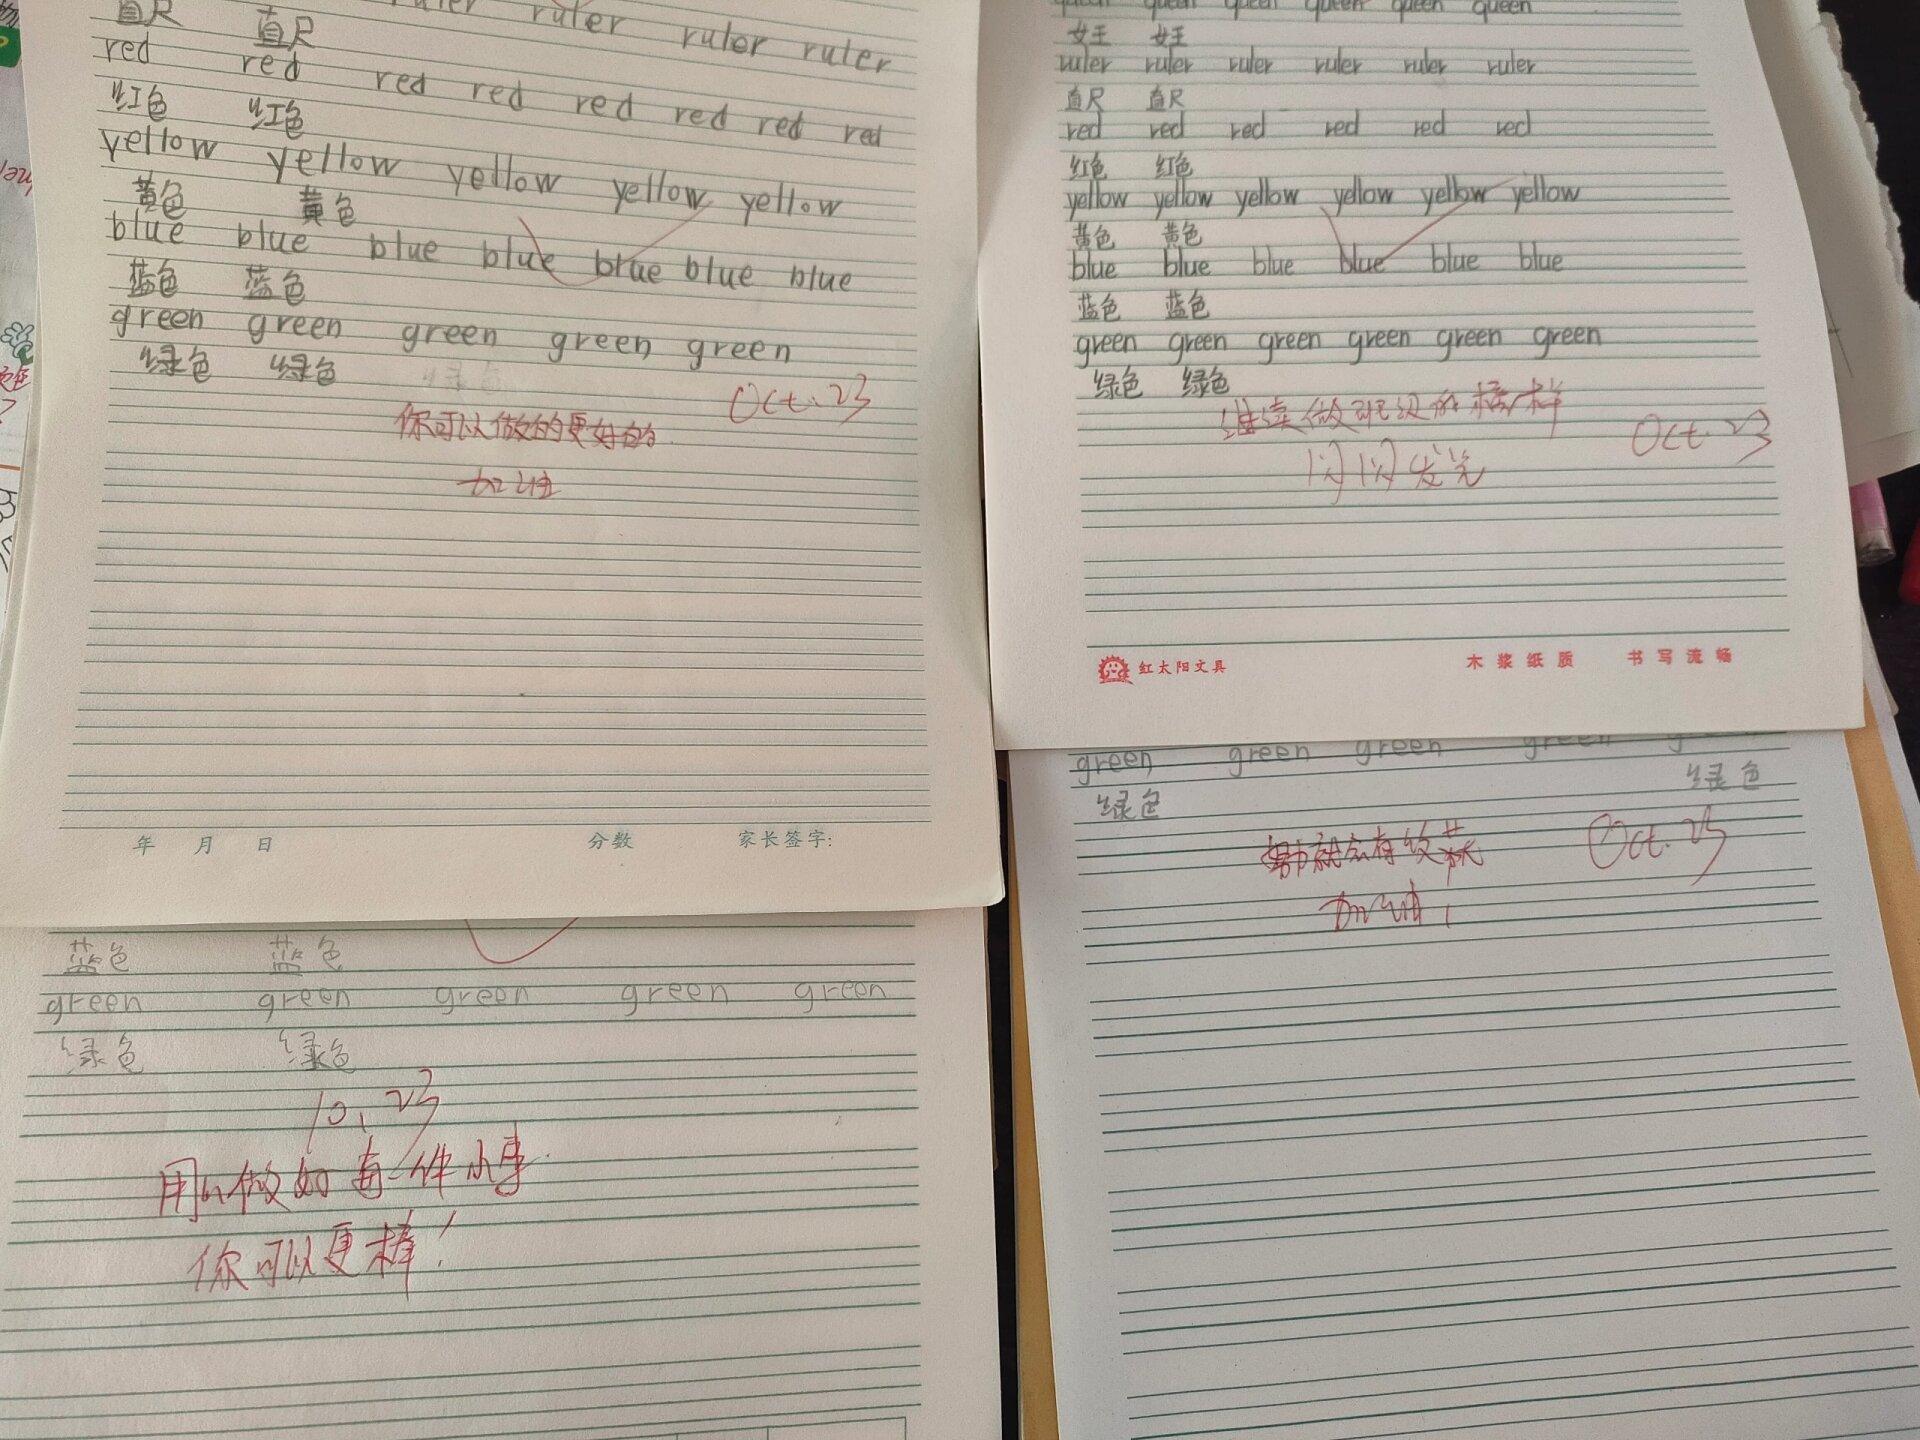 直尺 直尺
ruler ruler ruler ruler
red red red red red red red red
红色 红色
yellow yellow yellow yellow yellow
黄色 黄色
blue blue blue blue blue blue blue
蓝色 蓝色
green green green green green
绿色 绿色 绿色
Oct. 23
你可以做的更好的
加油
年 月 日 分数 家长签字:
queen queen queen queen queen queen
女王 女王
ruler ruler ruler ruler ruler ruler
直尺 直尺
red red red red red red
红色 红色
yellow yellow yellow yellow yellow yellow
黄色 黄色
blue blue blue blue blue blue
蓝色 蓝色
green green green green green green
绿色 绿色
继续做班级的榜样
Oct. 23
闪闪发光
红太阳文具 木浆纸质 书写流畅
蓝色 蓝色
green green green green green
绿色 绿色
10.23
用心做好每一件小事
你可以更棒!
green green green green
绿色 绿色
就会有收获
Oct. 23
加油!